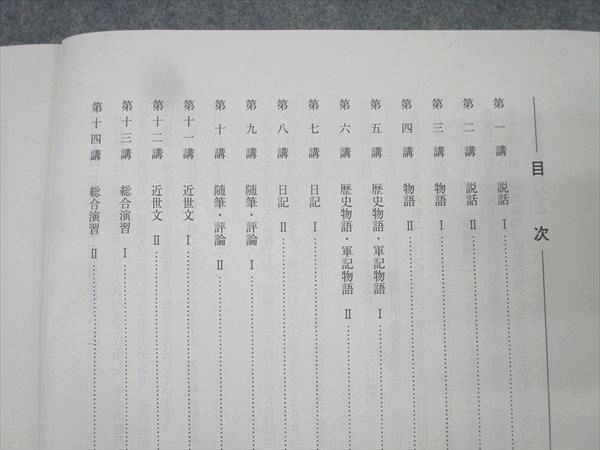 目次
第一講 説話 Ⅰ
第二講 説話 Ⅱ
第三講 物語 Ⅰ
第四講 物語 Ⅱ
第五講 歴史物語・軍記物語 Ⅰ
第六講 歴史物語・軍記物語 Ⅱ
第七講 日記 Ⅰ
第八講 日記 Ⅱ
第九講 随筆・評論 Ⅰ
第十講 随筆・評論 Ⅱ
第十一講 近世文 Ⅰ
第十二講 近世文 Ⅱ
第十三講 総合演習 Ⅰ
第十四講 総合演習 Ⅱ